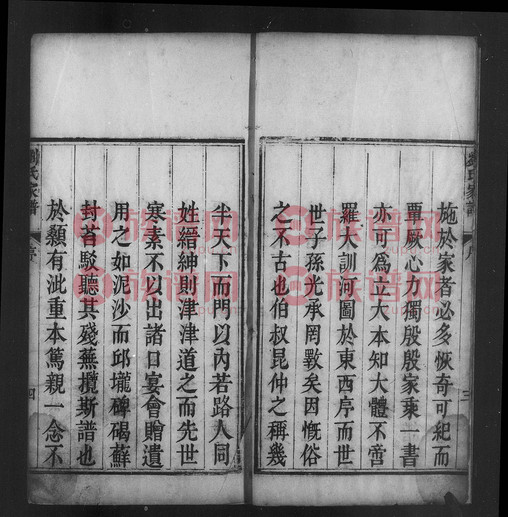 施於家者必多恢奇可紀而
覃厥心力獨殷殷家乘一書
亦可為立大本知大體不啻
羅大訓河圖於東西序而世
世子孫光承罔斁矣因慨俗
之不古也伯叔昆仲之稱幾
三
半天下而門以內若路人同
姓縉紳則津津道之而先世
寒素不以出諸口宴會贈遺
用之如泥沙而邱壠碑碣蘚
封苔駁聽其殘蕪攬斯譜也
於顙有泚重本篤親一念不
氏家譜
序
四
族谱网